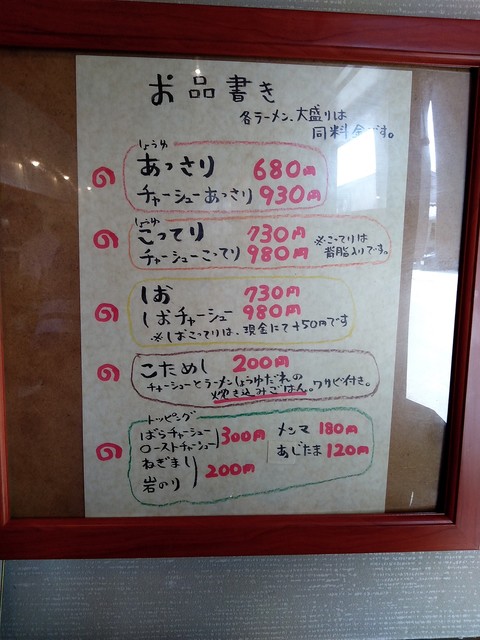 お品書き
各ラーメン、大盛りは
同料金です。
しょうゆ
あっさり 680円
チャーシューあっさり 930円
しょうゆ
こってり 730円
チャーシューこってり 980円
※こってりは
背脂入りです。
しお 730円
しおチャーシュー 980円
※しおこってりは、現金にて+50円です
こためし 200円
チャーシューとラーメンしょうゆだれの
炊き込みごはん。ワサビ付き。
トッピング
ばらチャーシュー
ローストチャーシュー 300円
ねぎまし
岩のり 200円
メンマ 180円
あじたま 120円